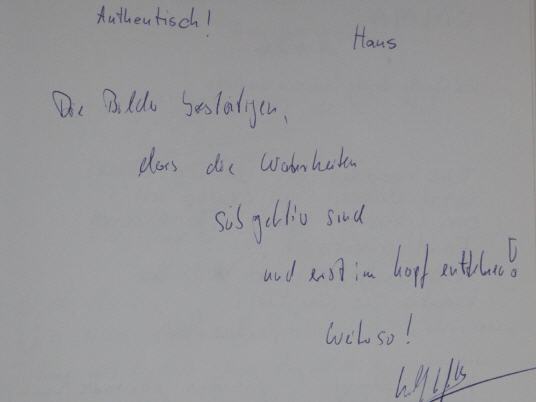 Authentisch!
Haus
Die Bilder bestätigen,
dass die Wahrheiten
subjektiv sind
und erst im Kopf entstehen!
Weiter so!